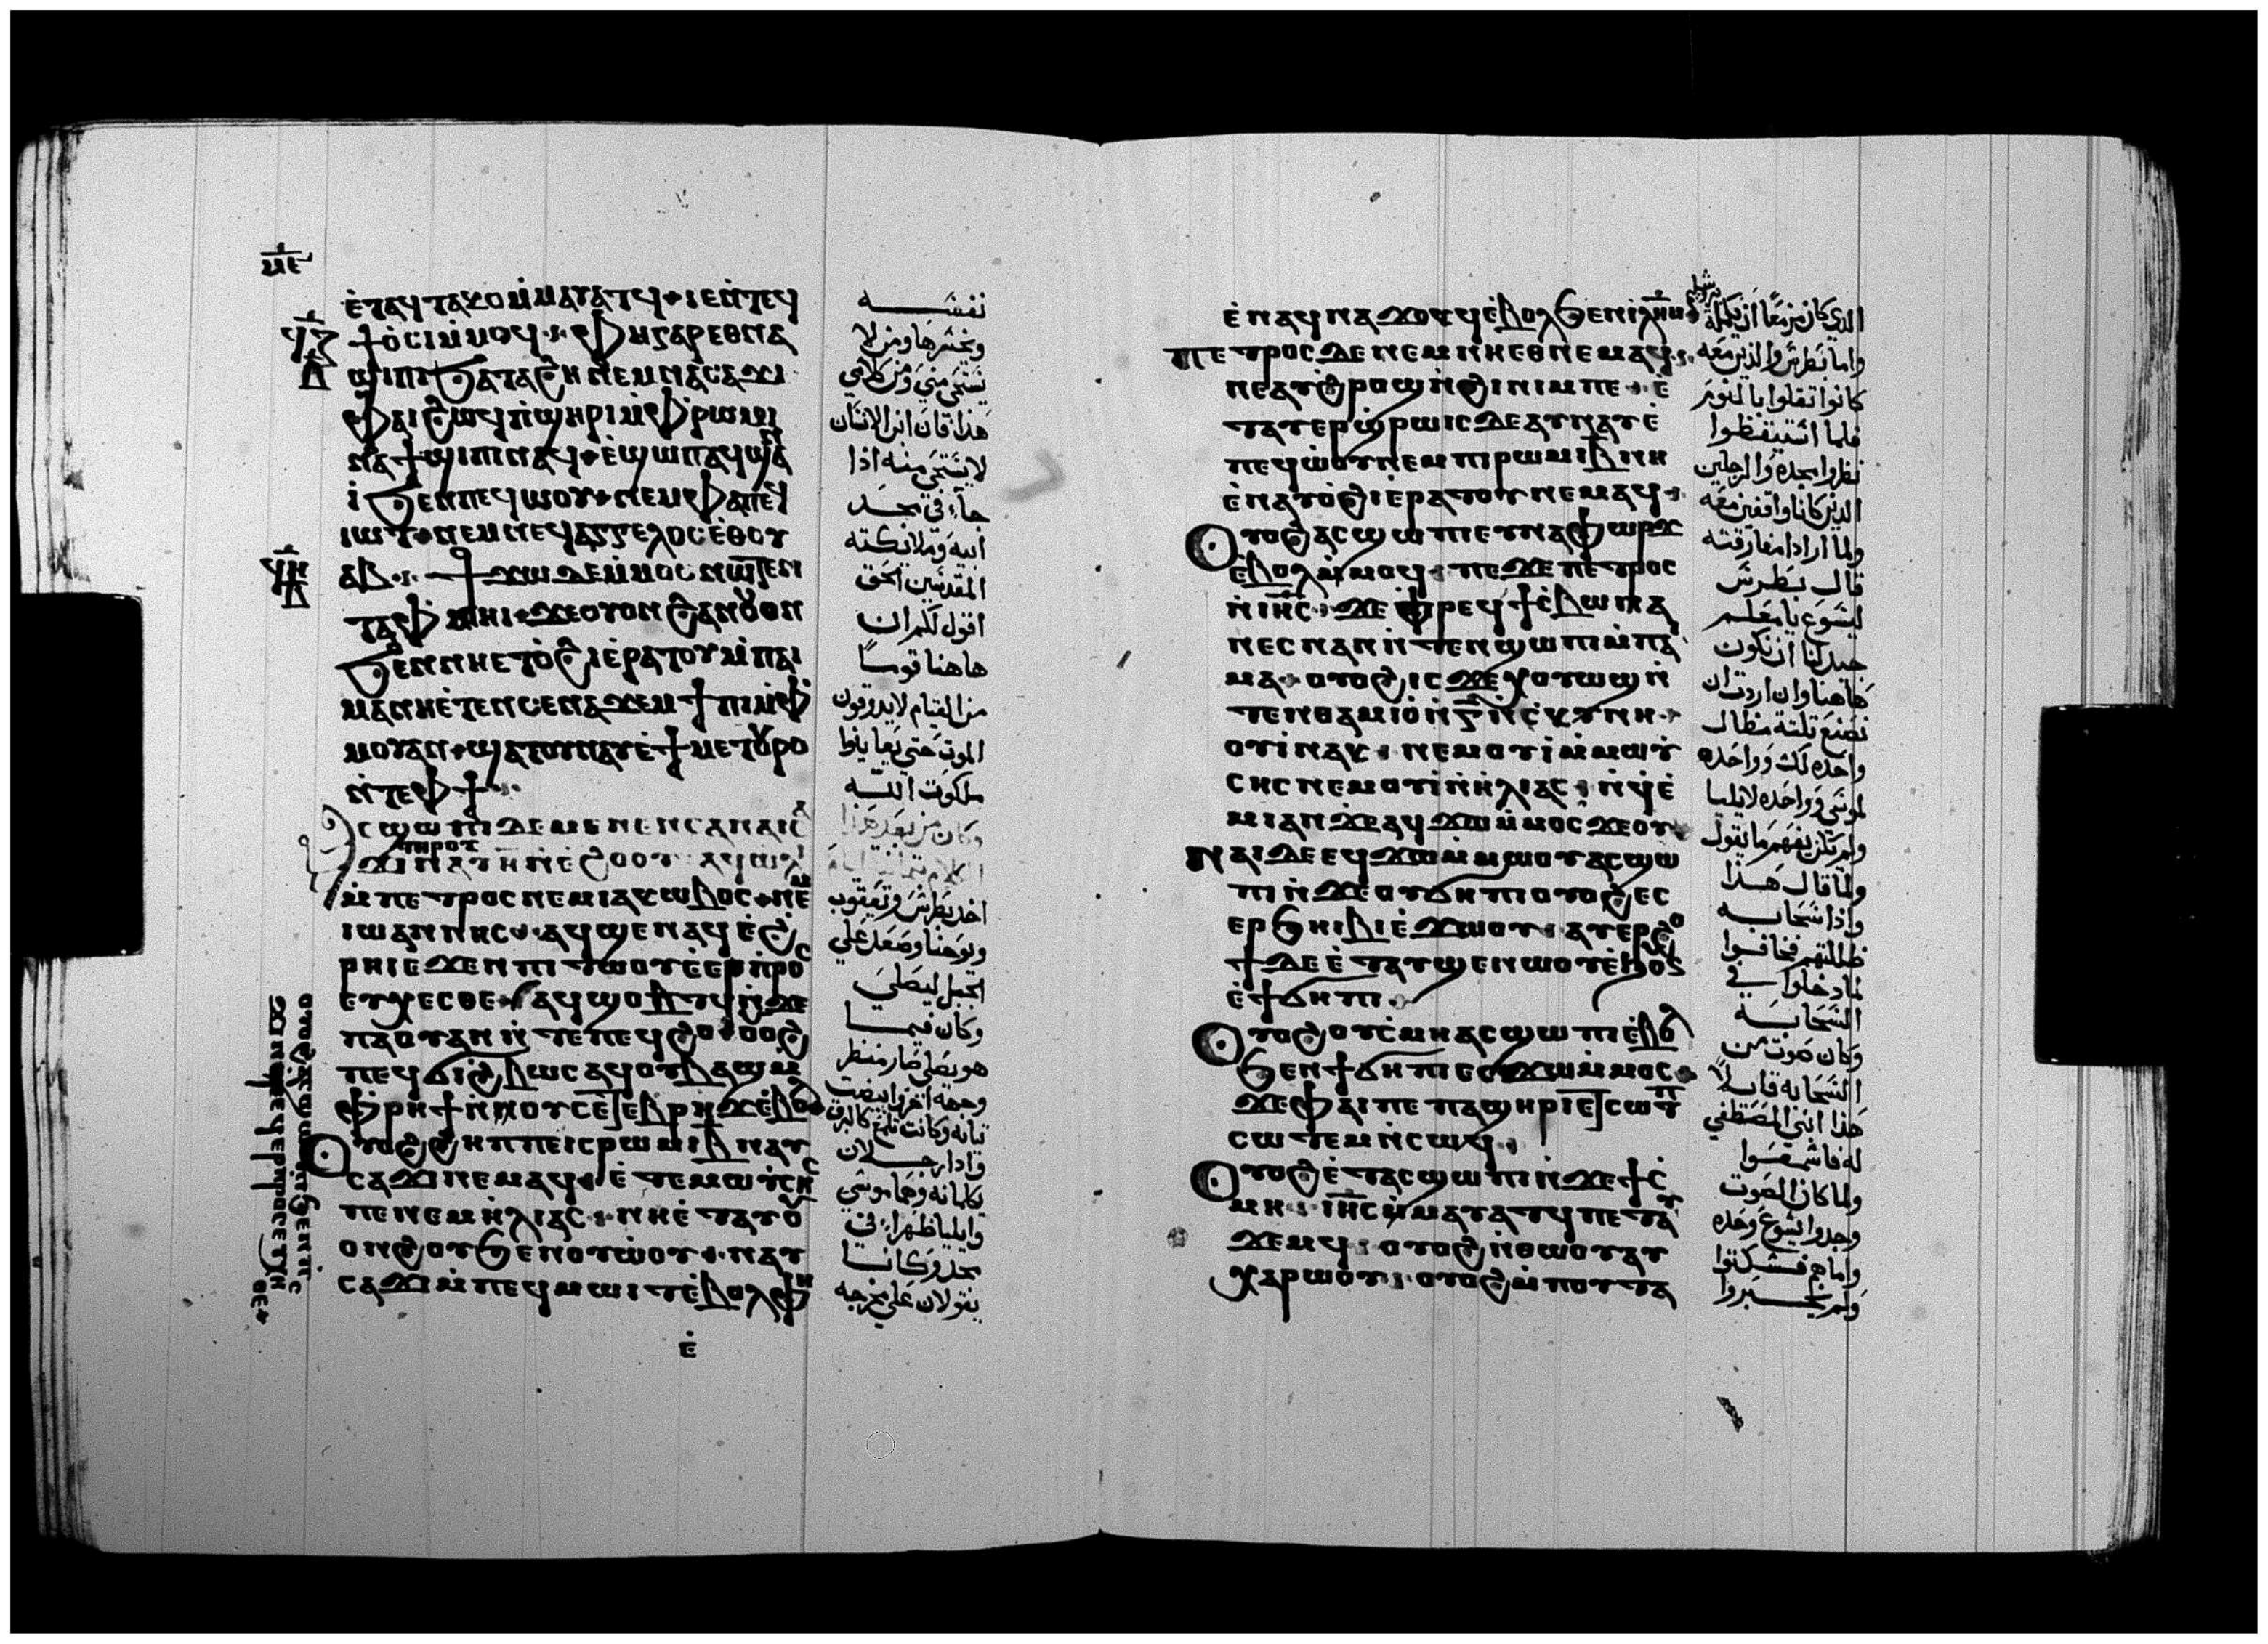 ⲙⲉ
ⲉ̇ⲧⲁϥⲧⲁⲕⲟⲙ̇ⲙⲁⲩⲁⲧϥ ⲓⲉⲛ̇ⲧⲉϥ
ϯⲟ̇ⲥⲓⲙ̇ⲙⲟϥ ⲫⲏⲅⲁⲣⲉⲑⲛⲁ
ϣⲓⲡⲓϧⲁⲧⲁϩⲏ ⲛⲉⲙⲛⲁⲥⲁϫⲓ
ⲫⲁⲓϩⲱϥⲡ̇ϣⲏⲣⲓⲙ̇ⲫⲣⲱⲙⲓ
ⲛⲁϯϣⲓⲡⲓⲛⲁϥ ⲉ̇ϣⲱⲡⲁϥϣⲁⲛ
ⲓ̇ϧⲉⲛⲡⲉϥⲱⲟⲩ ⲛⲉⲙⲫⲁⲡⲉϥ
ⲓⲱⲧ ⲛⲉⲙⲛⲉϥⲁⲅⲅⲉⲗⲟⲥⲉ̇ⲑⲟⲩ
ⲁⲃ ϯϫⲱⲇⲉⲙ̇ⲙⲟⲥⲛⲱⲧⲉⲛ
ⲧⲁⲫⲙⲏⲓ ϫⲉⲟⲩⲟⲛϩⲁⲛⲟⲩⲟⲛ
ϧⲉⲛⲛⲏⲉⲧⲟ̇ϩⲓⲉ̇ⲣⲁⲧⲟⲩⲙ̇ⲡⲁⲓ
ⲙⲁⲛⲏⲉ̇ⲧⲉⲛⲥⲉⲛⲁϫⲉⲙϯⲡⲓⲙ̇ⲫ
ⲙⲟⲩⲁⲛ ϣⲁⲧⲟⲩⲛⲁⲩⲉ̇ϯⲙⲉⲧⲟⲩⲣⲟ
ⲛ̇ⲧⲉⲫϯ
ⲥϣⲱⲡⲓⲇⲉⲙⲉⲛⲉⲛⲥⲁⲛⲁⲓⲥⲁ
ⲧⲏⲣⲟⲩ
ϫⲓⲛⲁⲩⲏ̅ⲛ̇ⲉ̇ϩⲟⲟⲩ ⲁϥⲱⲗⲓ
ⲙ̇ⲡⲉⲧⲣⲟⲥⲛⲉⲙⲓⲁⲕⲱⲃⲟⲥ ⲛⲉⲙ
ⲓⲱⲁⲛⲛⲏⲥ ⲁϥϣⲉⲛⲁϥⲉ̇ϩ
ⲣⲏⲓⲉϫⲉⲛⲡⲓⲧⲱⲟⲩⲉ̇ⲉⲣⲡ̇ⲣⲟⲥ
ⲉⲩⲭⲉⲥⲑⲉ ⲁϥϣⲟⲡⲧϥⲛ̇ϫⲉ
ⲡⲁⲟⲩⲁⲛⲛ̇ⲧⲉⲡⲉϥϩⲟ ⲟⲩⲟϩ
ⲡⲉϥϭⲓϩⲃⲱⲥⲁϥⲟⲩⲃⲁϣⲙ̇
ⲫⲣⲏϯⲛ̇ⲛⲟⲩⲥⲉⲧⲉⲃⲣⲏϫⲉ̇ⲃⲟⲗ
ⲟⲩⲟϩϩⲏⲡⲡⲉⲓⲥⲣⲱⲙⲓⲃ̅ⲛⲁⲩ
ⲥⲁϫⲓⲛⲉⲙⲁϥ ⲉ̇ⲧⲉⲙⲱⲩⲥⲏⲥ
ⲡⲉⲛⲉⲙⲏ̇ⲗⲓⲁⲥ ⲛⲏⲉ̇ⲧⲁⲩⲟⲩ
ⲟⲛϩⲟⲩϧⲉⲛⲟⲩⲱ̇ⲟⲩ ⲛⲁⲩ
ⲥⲁϫⲓⲙ̇ⲡⲉϥⲙⲱⲓⲧⲉ̇ⲃⲟⲗⲫⲏ
ⲉ̇
نفسه
ويخسرها ومن لا
يستحى منى ومن كلامي
هذا فان ابن الانسان
لا يستحى منه اذا
جآء في مجد
ابيه وملائكته
المقدسين الحق
اقول لكم ان
هاهنا قوماً
من القيام لا يدوقون
الموت حتى يعاينوا
ملكوت الله
وكان من بعد هذا
اخد بطرس ويعقوب
ويوحنا وصعد على
الجبل ليصلي
وكان فيما
هو يصلى صار منظر
وجهه اخر وابيضت
ثيابه وكانت تلمع كالبرق
واذا رجلان
يكلمانه وهما موسى
وايليا ظهرا في
مجد وكانا
يقولان على مخرجه
ⲉ̇ⲛⲁϥⲛⲁϫⲟⲕϥⲉ̇ⲃⲟⲗϧⲉⲛⲓⲗⲏⲙ
ⲡⲉⲧⲣⲟⲥⲇⲉⲛⲉⲙⲛⲏⲉⲑⲛⲉⲙⲁϥ
ⲛⲉⲁⲩϩⲣⲟϣⲛ̇ϩⲓⲛⲓⲙⲡⲉ ⲉ̇
ⲧⲁⲩⲉⲣϣ̇ⲣⲱⲓⲥⲇⲉⲁⲩⲛⲁⲩⲉ̇
ⲡⲉϥⲱ̇ⲟⲩⲛⲉⲙⲡⲓⲣⲱⲙⲓⲃ̅ⲛⲏ
ⲉ̇ⲛⲁⲩⲟ̇ϩⲓⲉ̇ⲣⲁⲧⲟⲩⲛⲉⲙⲁϥ
ⲟⲩⲟϩⲁⲥϣⲱⲡⲓⲉⲩⲛⲁⲫⲱⲣϫ
ⲉ̇ⲃⲟⲗⲙ̇ⲙⲟϥ ⲡⲉϫⲉⲡⲉⲧⲣⲟⲥ
ⲛ̇ⲓⲏⲥ ϫⲉⲫⲣⲉϥϯⲥ̇ⲃⲱⲛⲁ
ⲛⲉⲥⲛⲁⲛⲛ̇ⲧⲉⲛϣⲱⲡⲓⲙ̇ⲡⲁⲓ
ⲙⲁ ⲟⲩⲟϩⲓⲥϫⲉⲭⲟⲩⲱϣⲛ̇
ⲧⲉⲛⲑⲁⲙⲓⲟ̇ⲛ̇ⲅ̅ⲛ̇ⲥ̇ⲕⲩⲛⲏ
ⲟⲩⲓ̇ⲛⲁⲕ ⲛⲉⲙⲟⲩⲓ̇ⲙ̇ⲙⲱⲩ̇
ⲥⲏⲥⲛⲉⲙⲟⲩⲓ̇ⲛ̇ⲏ̇ⲗⲓⲁⲥ ⲛ̇ϥⲉ̇
ⲙⲓⲁⲛϫⲉⲁϥϫⲱⲙ̇ⲙⲟⲥϫⲉⲟⲩ
ⲛⲁⲓⲇⲉⲉϥϫⲱⲙ̇ⲙⲱⲟⲩⲁⲥϣⲱ
ⲡⲓⲛ̇ϫⲉⲟⲩϭⲏⲡⲓⲟⲩⲟϩⲉⲥ
ⲉⲣϧⲏⲓⲃⲓⲉ̇ϫⲱⲟⲩ ⲁⲩⲉⲣϩⲟ
ϯⲇⲉⲉ̇ⲧⲁⲩϣⲉⲛⲱⲟⲩⲉ̇ϧⲟⲩⲛ
ⲉ̇ϯϭⲏⲡⲓ
ⲟⲩⲟϩⲟⲩⲥ̇ⲙⲏⲁⲥϣⲱⲡⲓⲉ̇ⲃⲟⲗ
ϧⲉⲛϯϭⲏⲡⲓⲉⲥϫⲱⲙ̇ⲙⲟⲥ
ϫⲉⲫⲁⲓⲡⲉⲡⲁϣⲏⲣⲓⲉⲧⲥⲱⲧⲡ
ⲥⲱⲧⲉⲙⲛ̇ⲥⲱϥ
ⲟⲩⲟϩⲉ̇ⲧⲁⲥϣⲱⲡⲓⲛ̇ϫⲉϯⲥ̇
ⲙⲏ ⲓⲏⲥⲙ̇ⲙⲁⲩⲁⲧϥⲡⲉⲧⲁⲩ
ϫⲉⲙϥ ⲟⲩⲟϩⲛ̇ⲑⲱⲟⲩⲁⲩ
ⲭⲁⲣⲱⲟⲩ ⲟⲩⲟϩⲙ̇ⲡⲟⲩⲧⲁ
الدي كان مزمعاً ان يكمله
واما بطرس والذين معه
كانوا تقلوا بالنوم
فلما استيقظوا
نظروا مجده والرجلين
الذين كانا واقفين معه
ولما ارادا مفارقته
قال بطرس
ليسوع يا معلم
جيد لنا ان نكون
هاهنا وان اردت ان
نصنع تلتة مظال
واحده لك وواحده
لموسى وواحده لايليا
ولم يكن يفهم ما يقول
ولما قال هذا
واذا سحابه
ظللتهم فخافوا
لما دخلوا في
السحابه
وكان صوت من
السحابه قايلا
هذا ابنى المصطفى
له فاسمعوا
ولما كان الصوت
وجدوا يسوع وحده
واما هم فسكتوا
ولم يخبروا